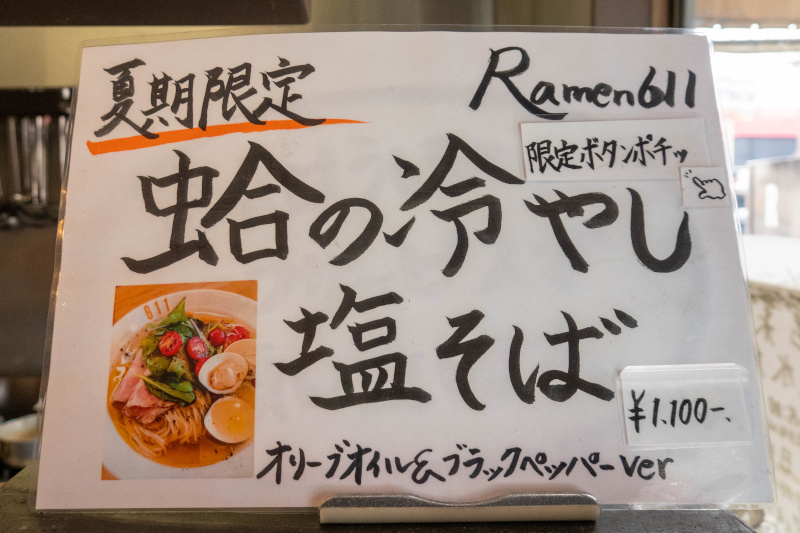 夏期限定
Ramen611
限定ボタンポチッ
蛤の冷やし
塩そば
611
¥1.100-、
オリーブオイル&ブラックペッパーver